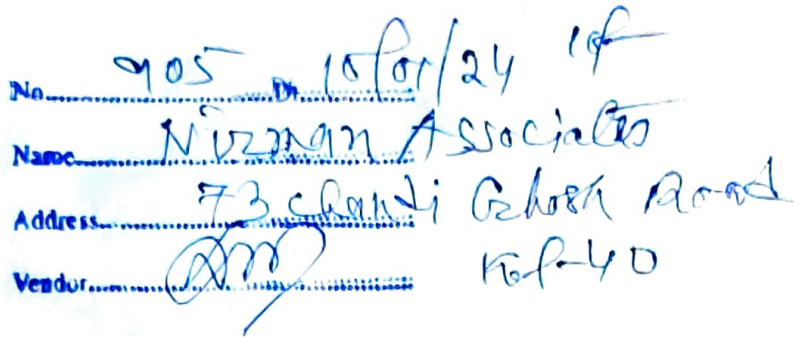 No......905......Dt. 10/01/24 10/-
Name......Nirman Associates
Address......73 Chandi Ghosh Road
Vendor...... Kol-40